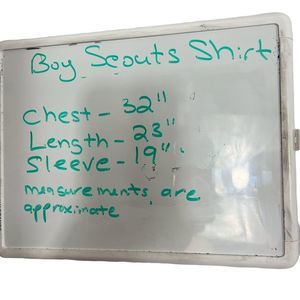 Boy Scouts Shirt
Chest - 32"
Length - 23"
Sleeve - 19"
measurements are
approximate